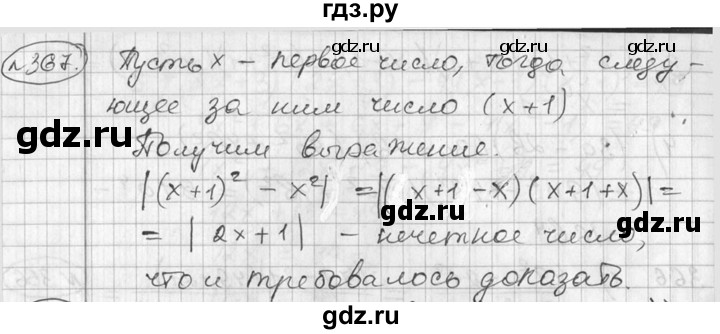 гдз.ру
№367. Пусть x – первое число, тогда следу-
gdz.ru gdz.ru
ющее за ним число (x+1)
Получим выражение.
gdz.ru gdz.ru
|(x+1)² – x²| = |(x+1–x)(x+1+x)| =
= |2x+1| – нечетное число,
gdz.ru gdz.ru
что и требовалось доказать.
gdz.ru